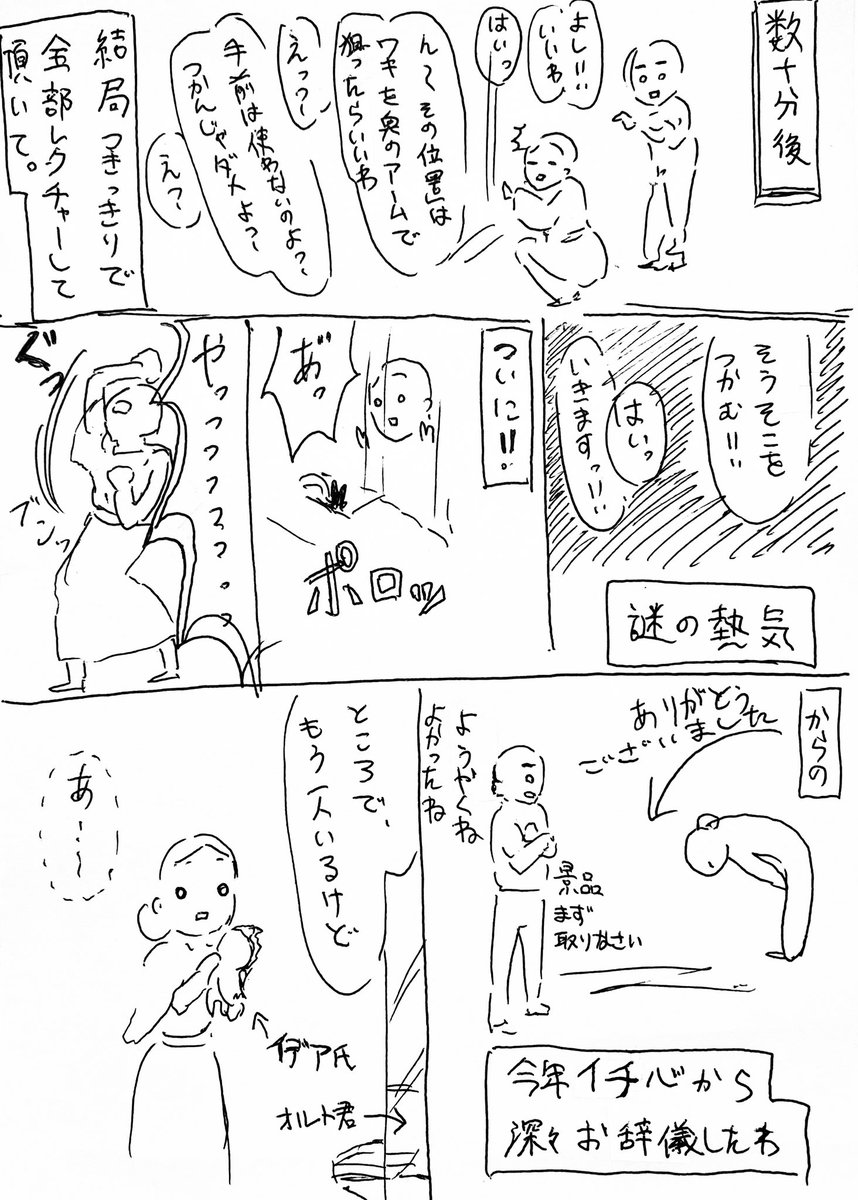 数十分後
よし!!
いいわ
はいっ
ん〜その位置は
ワキを奥のアームで
狙ったらいいわ
えっ?〜
手前は使わないのよ?〜
つかんじゃダメよっ〜
えっ〜
結局つきっきりで
全部レクチャーして
頂いて。
そうそこを
つかむ!!
はいっ
いきますっ!!
謎の熱気
ついに!!
あ゛っ
ポロッ
やっつっつろっ・・っ
ぐっ
ブンッ
からの
ありがとう
ございました
ようやくね
よかったね
景品
まず
取りなさい
今年イチ心から
深々お辞儀したわ
ところで、
もう一人いるけど
あ…〜
イデア氏
オルト君→